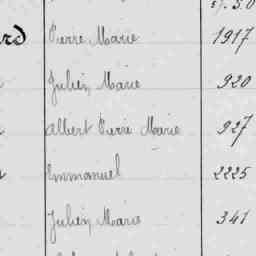 Pierre Marie 1917
Julien Marie 920
Albert Pierre Marie 927
Emmanuel 2225
Julien Marie 341